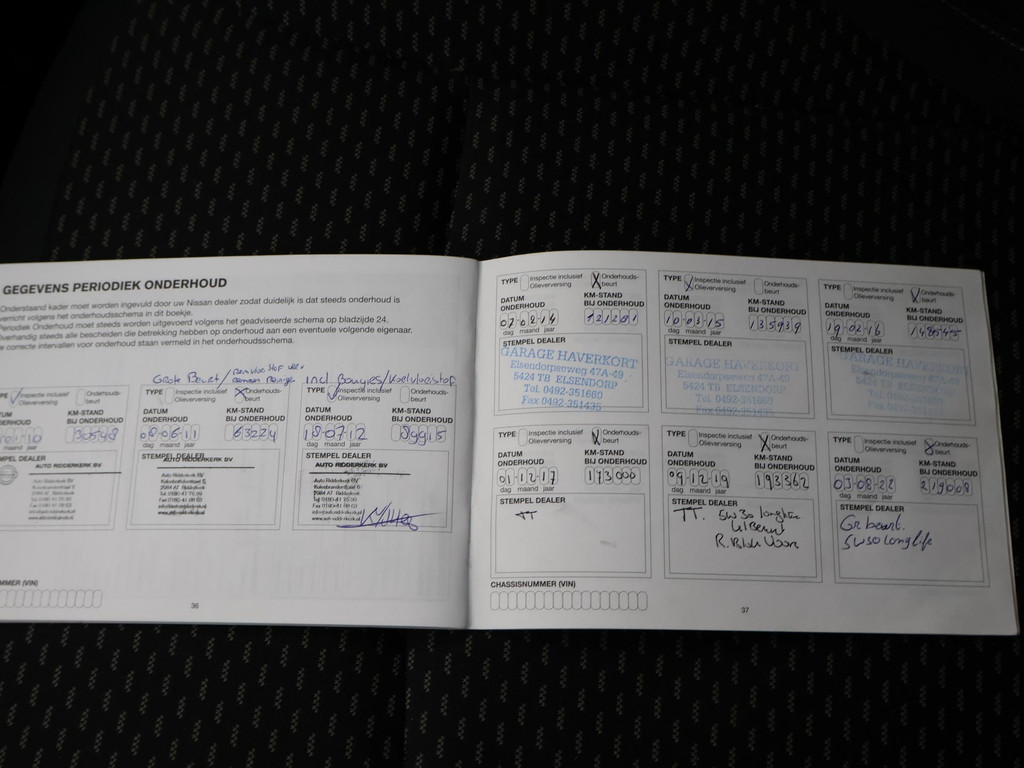 GEGEVENS PERIODIEK ONDERHOUD
Onderstaand kader moet worden ingevuld door uw Nissan dealer zodat duidelijk is dat steeds onderhoud is
verricht volgens het onderhoudsschema in dit boekje.
Periodiek Onderhoud moet steeds worden uitgevoerd volgens het geadviseerde schema op bladzijde 24.
Overhandig steeds alle bescheiden die betrekking hebben op onderhoud aan een eventuele volgende eigenaar.
correcte intervallen voor onderhoud staan vermeld in het onderhoudsschema.
Grote Beurt/
incl Bougies/Koelvloeistof
Inspectie inclusief
Olieverversing
Onderhouds-
beurt
KM-STAND
BIJ ONDERHOUD
10
dag maand jaar
STEMPEL DEALER
AUTO RIDDERKERK BV
TYPE Inspectie inclusief
Olieverversing
Onderhouds-
beurt
DATUM
ONDERHOUD
KM-STAND
BIJ ONDERHOUD
08-06-11
63224
dag maand jaar
STEMPEL DEALER
AUTO RIDDERKERK BV
TYPE Inspectie inclusief
Olieverversing
Onderhouds-
beurt
DATUM
ONDERHOUD
KM-STAND
BIJ ONDERHOUD
18-07-12
89915
dag maand jaar
STEMPEL DEALER
AUTO RIDDERKERK BV
(VIN)
36
TYPE Inspectie inclusief
Olieverversing
X Onderhouds-
beurt
DATUM
ONDERHOUD
KM-STAND
BIJ ONDERHOUD
07-02-14
121201
dag maand jaar
STEMPEL DEALER
GARAGE HAVERKORT
Elsendorpseweg 47A-49
5424 TB ELSENDORP
Tel. 0492-351660
Fax 0492-351435
TYPE Inspectie inclusief
Olieverversing
Onderhouds-
beurt
DATUM
ONDERHOUD
KM-STAND
BIJ ONDERHOUD
10-03-15
135939
dag maand jaar
STEMPEL DEALER
GARAGE HAVERKORT
Elsendorpseweg 47A-49
5424 TB ELSENDORP
Tel. 0492-351660
Fax 0492-351435
TYPE Inspectie inclusief
Olieverversing
Onderhouds-
beurt
DATUM
ONDERHOUD
KM-STAND
BIJ ONDERHOUD
19-02-16
148545
dag maand jaar
STEMPEL DEALER
GARAGE HAVERKORT
Elsendorpseweg 47A-49
5424 TB ELSENDORP
Tel. 0492-351660
Fax 0492-351435
TYPE Inspectie inclusief
Olieverversing
Onderhouds-
beurt
DATUM
ONDERHOUD
KM-STAND
BIJ ONDERHOUD
01-12-17
173000
dag maand jaar
STEMPEL DEALER
TT
TYPE Inspectie inclusief
Olieverversing
X Onderhouds-
beurt
DATUM
ONDERHOUD
KM-STAND
BIJ ONDERHOUD
09-12-19
193362
dag maand jaar
STEMPEL DEALER
TT. 5W30 longlife
Kl Beurt
R. Blok Voor
TYPE Inspectie inclusief
Olieverversing
Onderhouds-
beurt
DATUM
ONDERHOUD
KM-STAND
BIJ ONDERHOUD
03-08-22
219008
dag maand jaar
STEMPEL DEALER
Gr beurt.
5W30 longlife
CHASSISNUMMER (VIN)
37